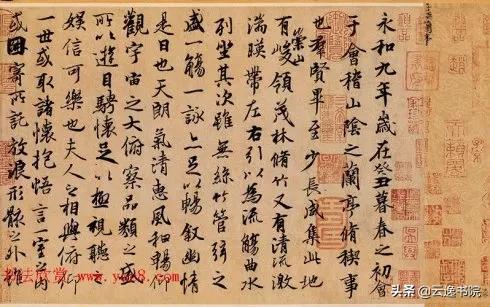 永和九年歲在癸丑暮春之初會
于會稽山陰之蘭亭脩稧事
也羣賢畢至少長咸集此地
有崇山峻領茂林脩竹又有清流激
湍暎帶左右引以為流觴曲水
列坐其次雖無絲竹管弦之
盛一觴一詠亦足以暢敘幽情
是日也天朗氣清惠風和暢仰
觀宇宙之大俯察品類之盛
所以遊目騁懷足以極視聽之
娛信可樂也夫人之相與俯仰
一世或取諸懷抱悟言一室之內
或因寄所託放浪形骸之外雖
书法欣赏 www.yac8.com
头条 @云逸书院